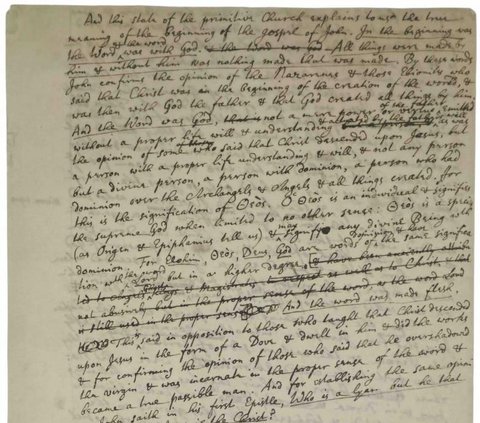 And this state of the primitive Church explains to us the true
meaning of the beginning of the gospel of John. In the beginning was
the Word & the word was with God, & the Word was God. All things were made by
him & without him was nothing made that was made. By these words
John confirms the opinion of the Nazarenes & those Ebionits who
said that Christ was in the beginning of the creation of the world, &
was then with God the father & that God created all things by him
And the Word was God, that is not a mere power of the father
without a proper life will & understanding emitted
the opinion of some who said that Christ descended upon Jesus, but
a person with a proper life understanding & will, & not any person
but a divine person, a person with dominion, a person who had
dominion over the Archangels & Angels & all things created. For
this is the signification of Θεός. Ὁ Θεός is an individual & signifies
the supreme God when limited to no other sense. Θεός is a species
(as Origen & Epiphanius tell us) & may signify any divine Being with
dominion. For Elohim, Θεός, Deus, God are words of the same significa
tion with the word Lord but in a higher degree, & have been anciently attribu
ted to Angels Kings & Magistrates as well as to Christ, & that
not absurdly but in the proper sense of the word, as the word Lord
is still used in the proper sense And the word was made flesh.
This said in opposition to those who taught that Christ descended
upon Jesus in the form of a Dove & dwelt in him & did the works
& for confirming the opinion of those who said that he overshadowed
the virgin & was incarnate in the proper sense of the word &
became a true passible man. And for establishing the same opini
John saith in his first Epistle, Who is a lyar but he that
is the Christ?